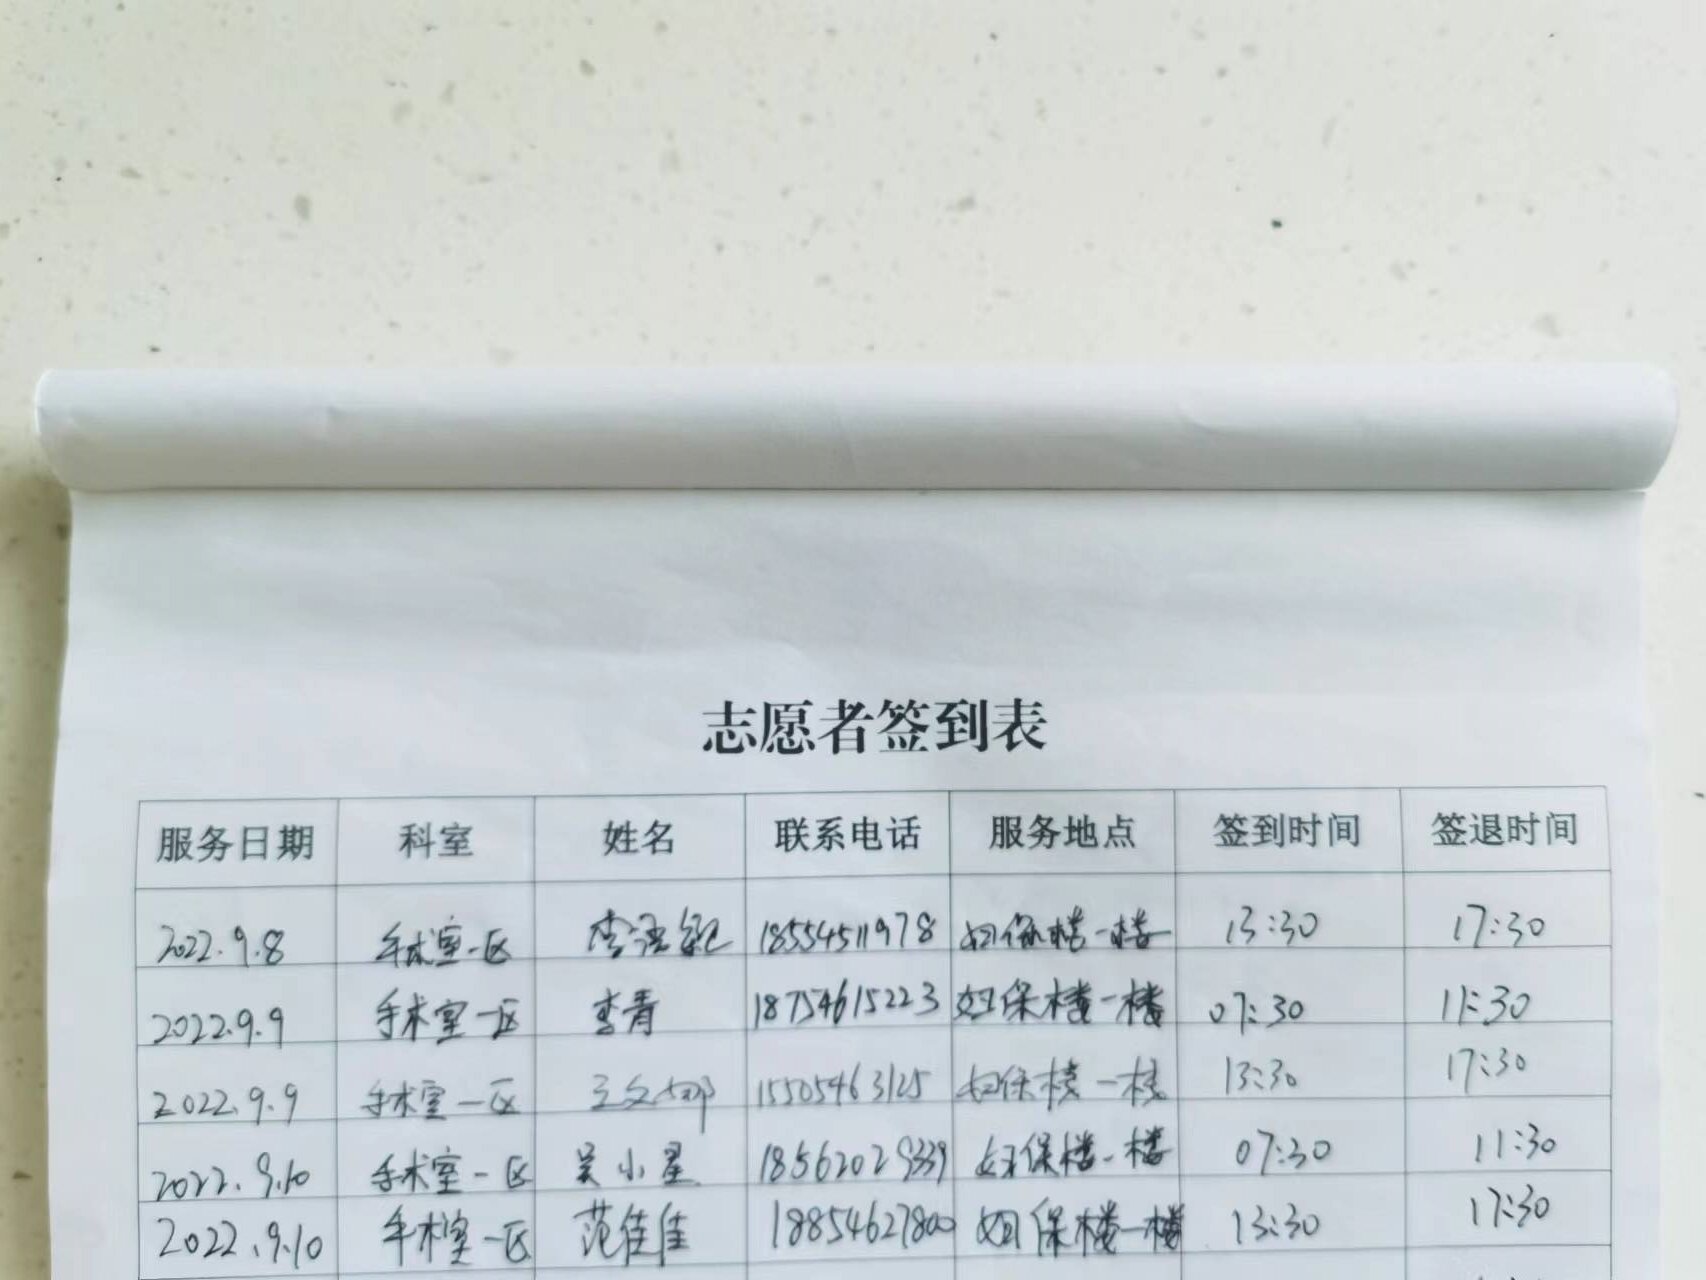 志愿者签到表
服务日期 科室 姓名 联系电话 服务地点 签到时间 签退时间
2022.9.8 手术室一区 李 18554511978 妇保楼一楼 13:30 17:30
2022.9.9 手术室一区 李青 18754615223 妇保楼一楼 07:30 11:30
2022.9.9 手术室一区 王文娜 15505463125 妇保楼一楼 13:30 17:30
2022.9.10 手术室一区 吴小星 18562029339 妇保楼一楼 07:30 11:30
2022.9.10 手术室一区 范佳佳 18854627800 妇保楼一楼 13:30 17:30